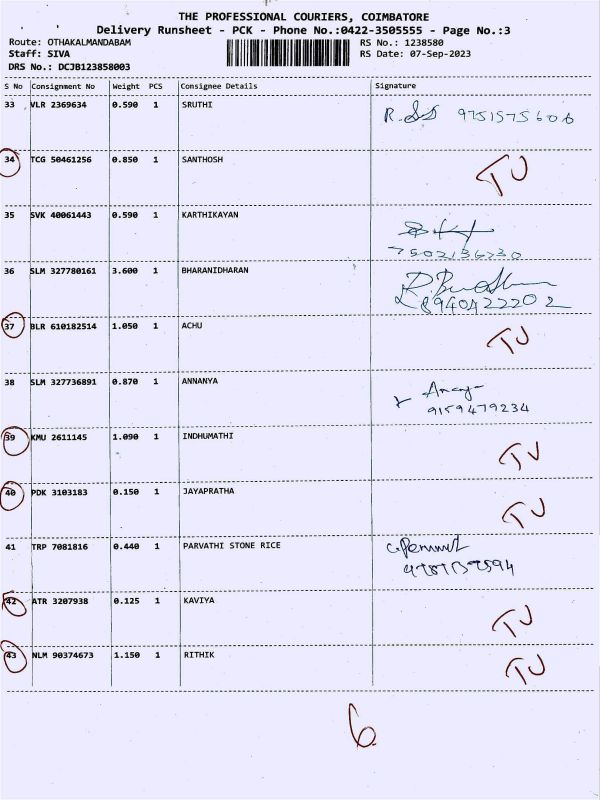 THE PROFESSIONAL COURIERS, COIMBATORE
Delivery Runsheet - PCK - Phone No.:0422-3505555 - Page No.:3
Route: OTHAKALMANDABAM RS No.: 1238580
Staff: SIVA RS Date: 07-Sep-2023
DRS No.: DCJB123858003
S No Consignment No Weight PCS Consignee Details Signature
33 VLR 2369634 0.590 1 SRUTHI
9751575606
34 TCG 50461256 0.850 1 SANTHOSH TU
35 SVK 40061443 0.590 1 KARTHIKAYAN
7502136730
36 SLM 327780161 3.600 1 BHARANIDHARAN
8940422202
37 BLR 610182514 1.050 1 ACHU TU
38 SLM 327736891 0.870 1 ANNANYA
9159479234
39 KMU 2611145 1.090 1 INDHUMATHI TU
40 PDK 3103183 0.150 1 JAYAPRATHA TU
41 TRP 7081816 0.440 1 PARVATHI STONE RICE
42 ATR 3207938 0.125 1 KAVIYA TU
43 NLM 90374673 1.150 1 RITHIK TU
6